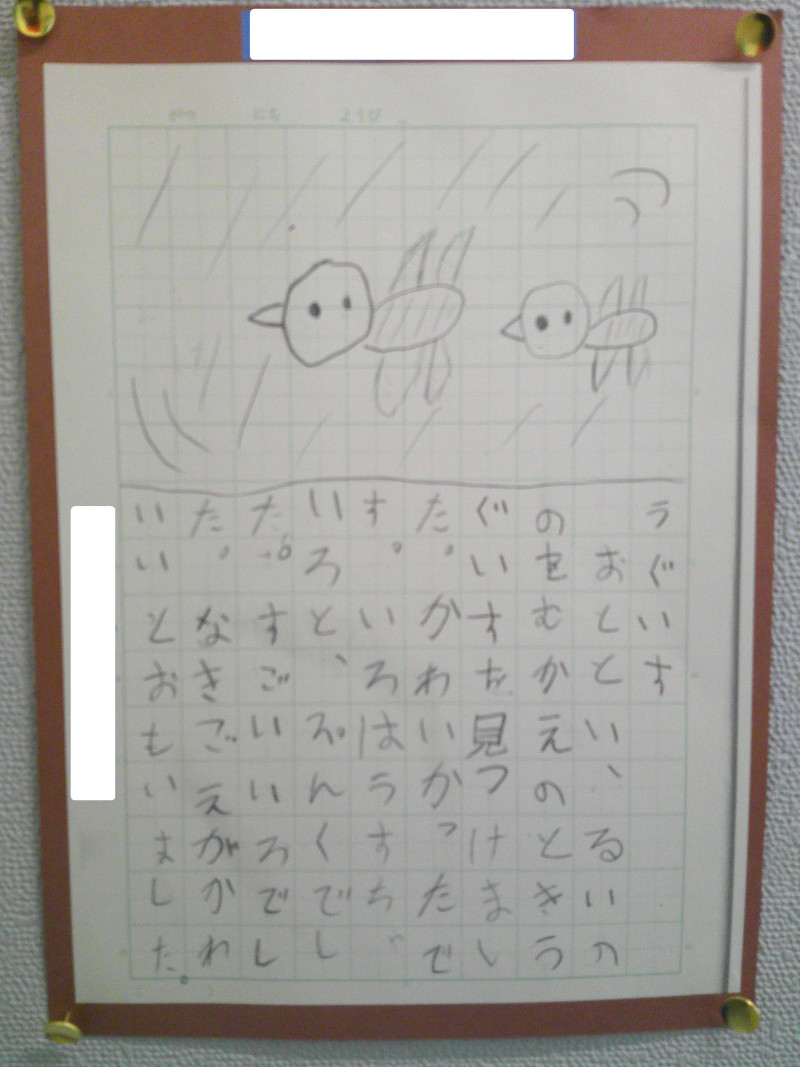 がつ　にち　ようび
うぐいす
おととい、るいの
のをむかえのときう
ぐいすを見つけまし
た。かわいかったで
す。いろはうすちゃ
いろと、ぴんくでし
た。すごいいろでし
た。なきごえがかわ
いいとおもいました。